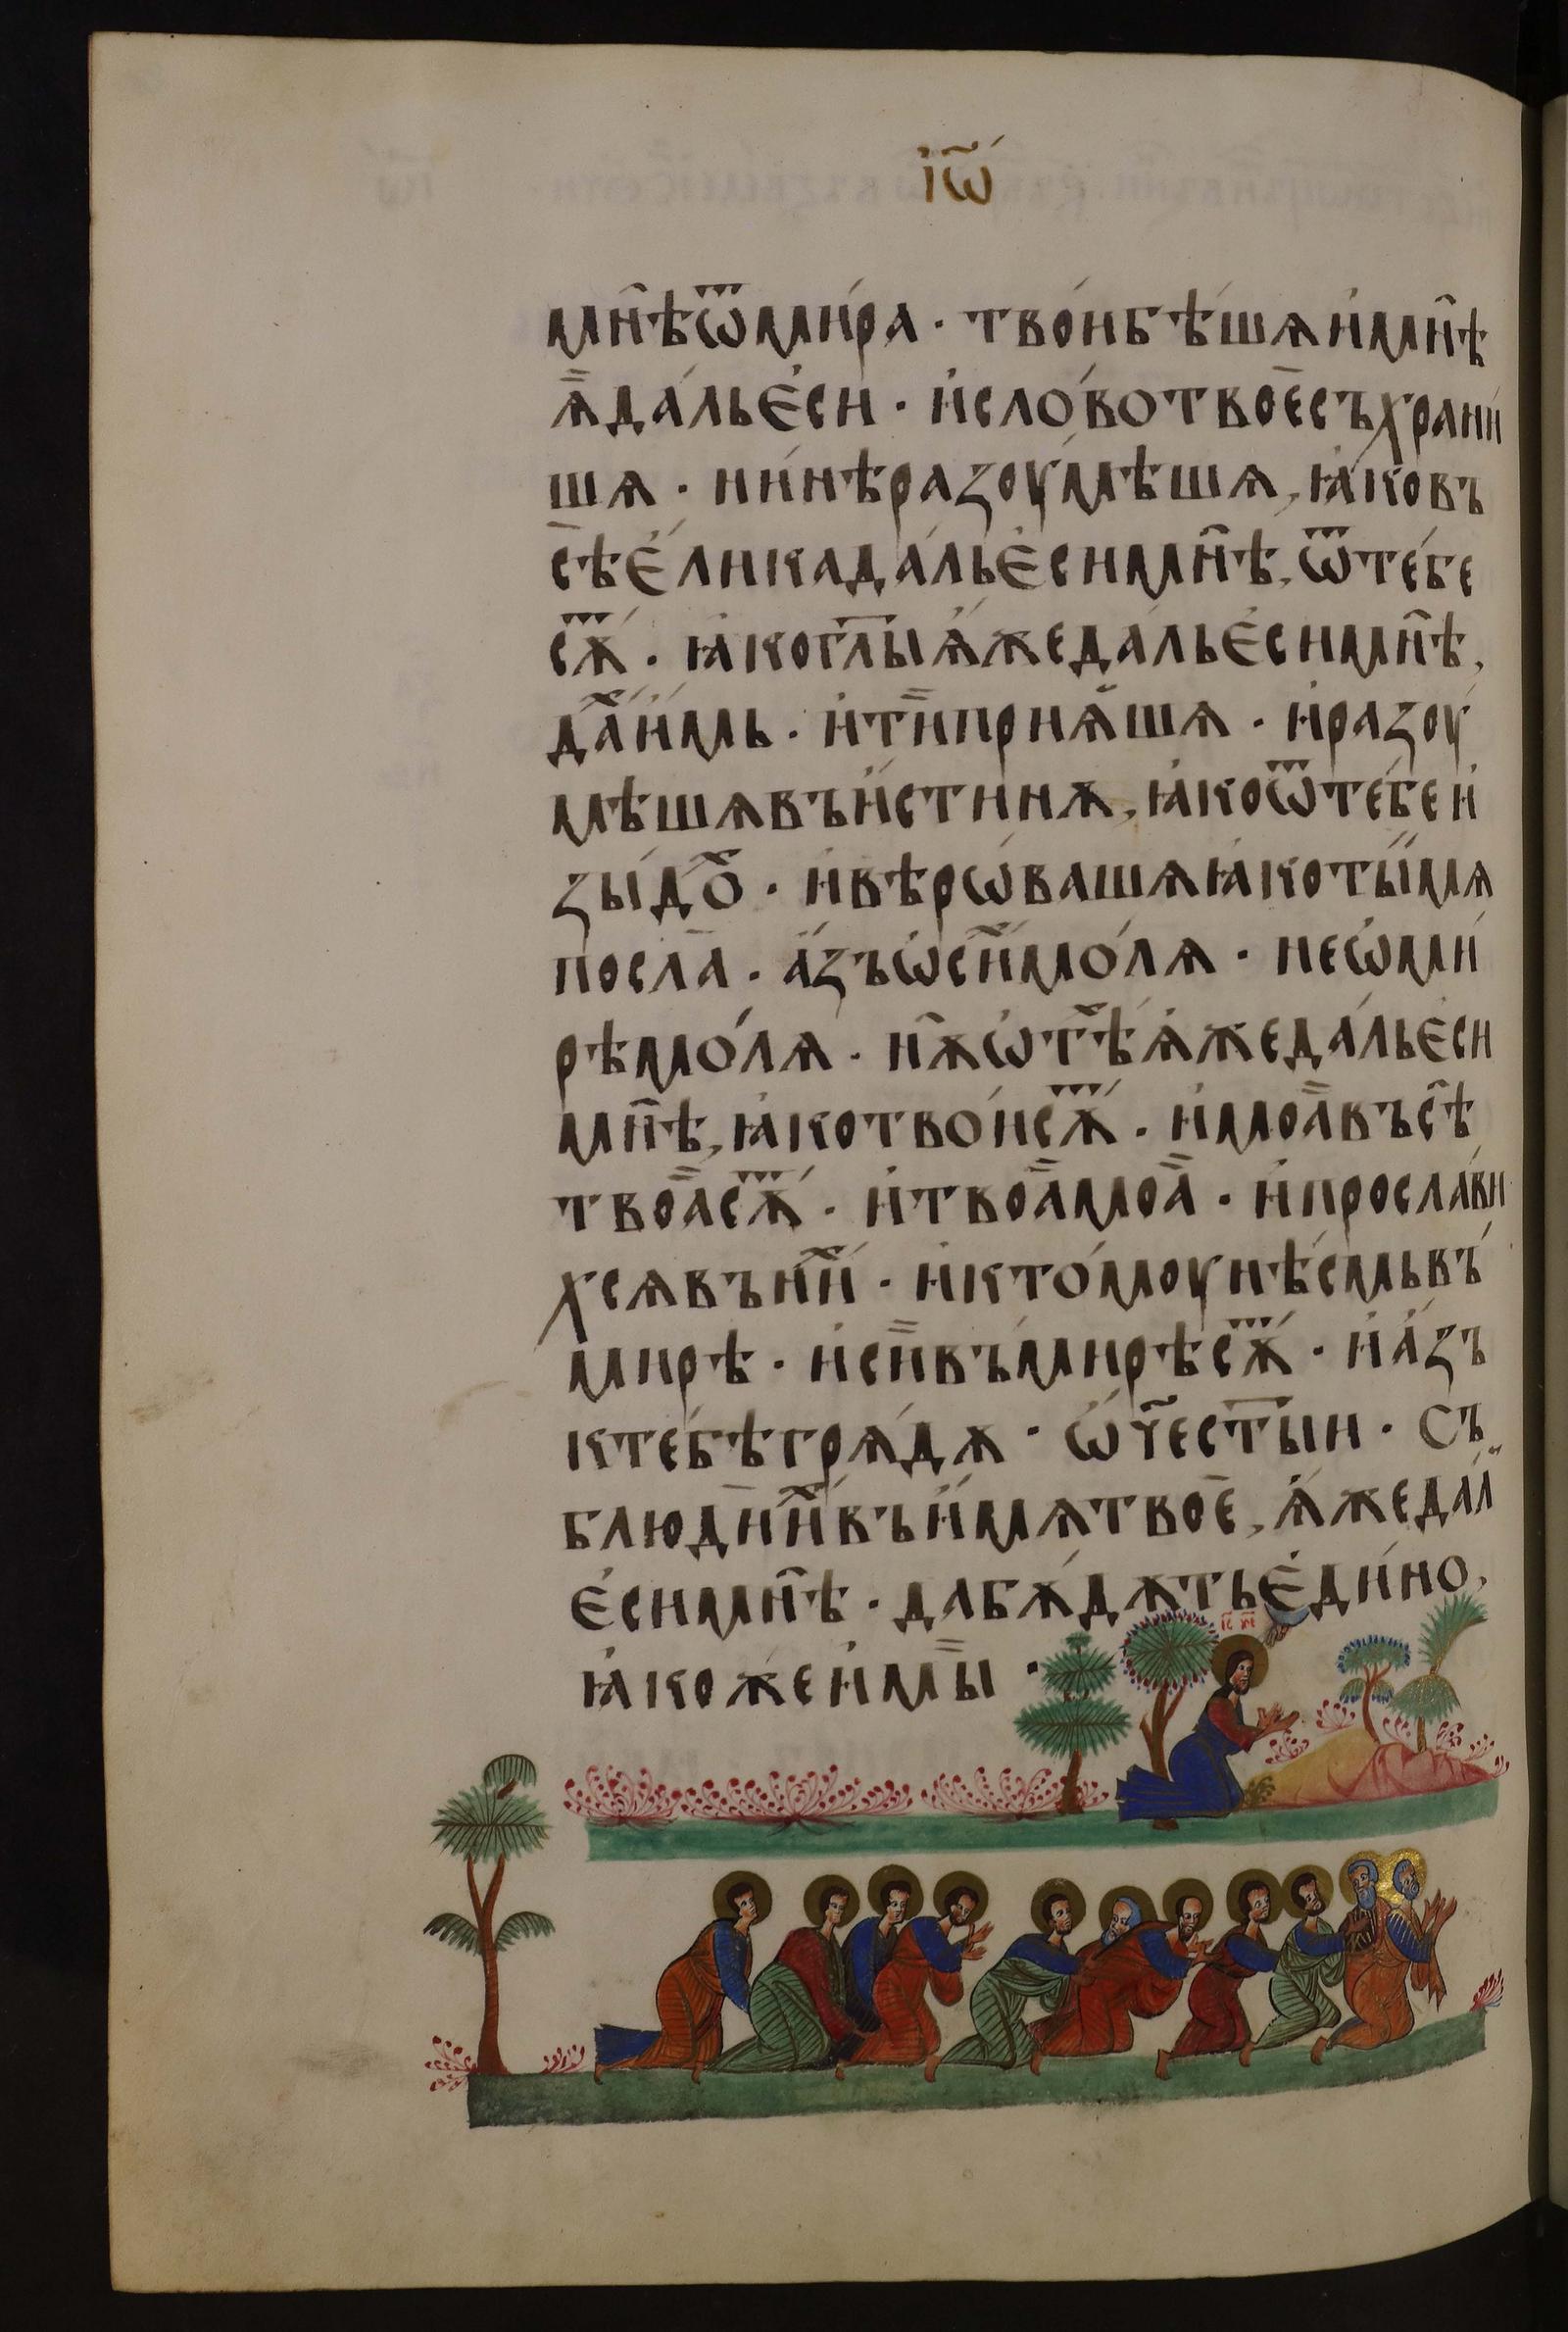 і҆ѡ҃
мн҆ѣѿми́ра · тво́ибѣ́шѧи҆мн҆ѣ
ѧ҆да́льє҆си · и҆сло́вотвоєсъхрани́
шѧ · ни́нѣразоу́мѣшѧ, ꙗ҆ковъ
сѣє҆́ликада́льє҆симн҆ѣ, ѿте́бе
сѫ́ · ꙗ҆когл҃ыѧ҆́жеда́льє҆симн҆ѣ,
да́и҆́мь · и҆ти҆приѧ́шѧ · и҆разоу́
мѣшѧвъи҆́стинѫ, ꙗ҆коѿте́беи҆
зы́дⷪ҇ · и҆вѣрѡ́вашѧꙗ҆коты́мѧ
посла · а҆́зъѡ҆си́хмо́лѧ · неѡ҆ми́
рѣмо́лѧ · нѫ҆ѡ҆тѣ́хѧ҆́жеда́льє҆си
мн҆ѣ, ꙗ҆котво́исѫ́ · и҆моа҆въсѣ҆
твоа҆сѫ́ · и҆твоа҆моа҆ · и҆просла́ви
хсѧвъни́х · и҆кто́моунѣ́смьвъ́
мирѣ · и҆си҆въмирѣсѫ́ · и҆а҆́зъ
кте́бѣгрѧ́дѫ · ѡ҆́ч҃ест҃ыи · Съ
блюдиⷯ҇и҆въи҆́мѧтвоє, ѧ҆́жеда́л
є҆симн҆ѣ · дабѫ́дѫтьє҆ди́но,
ꙗ҆коже́и҆мы҆ ·
і҃с х҃с